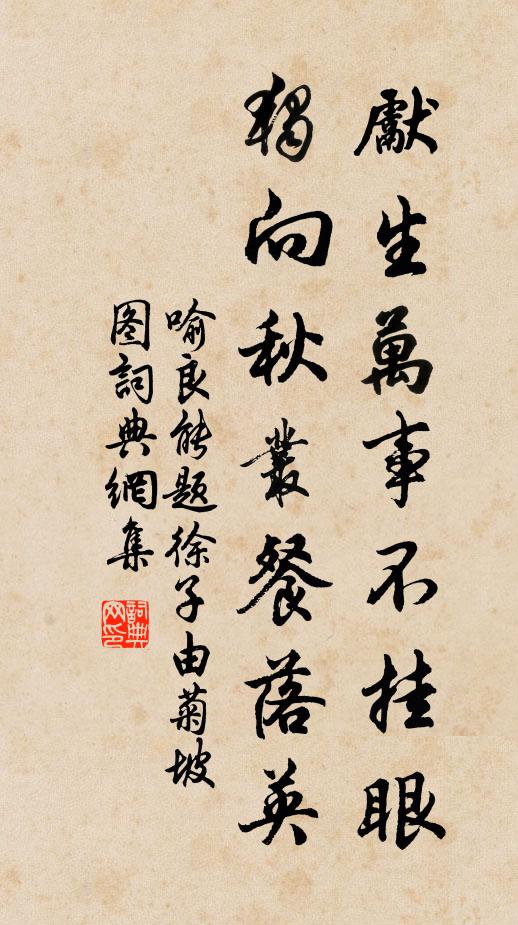 獻生萬事不挂眼
獨向秋叢餐落英
喻良能題徐子由菊坡
图詞典網集
詞典
网印